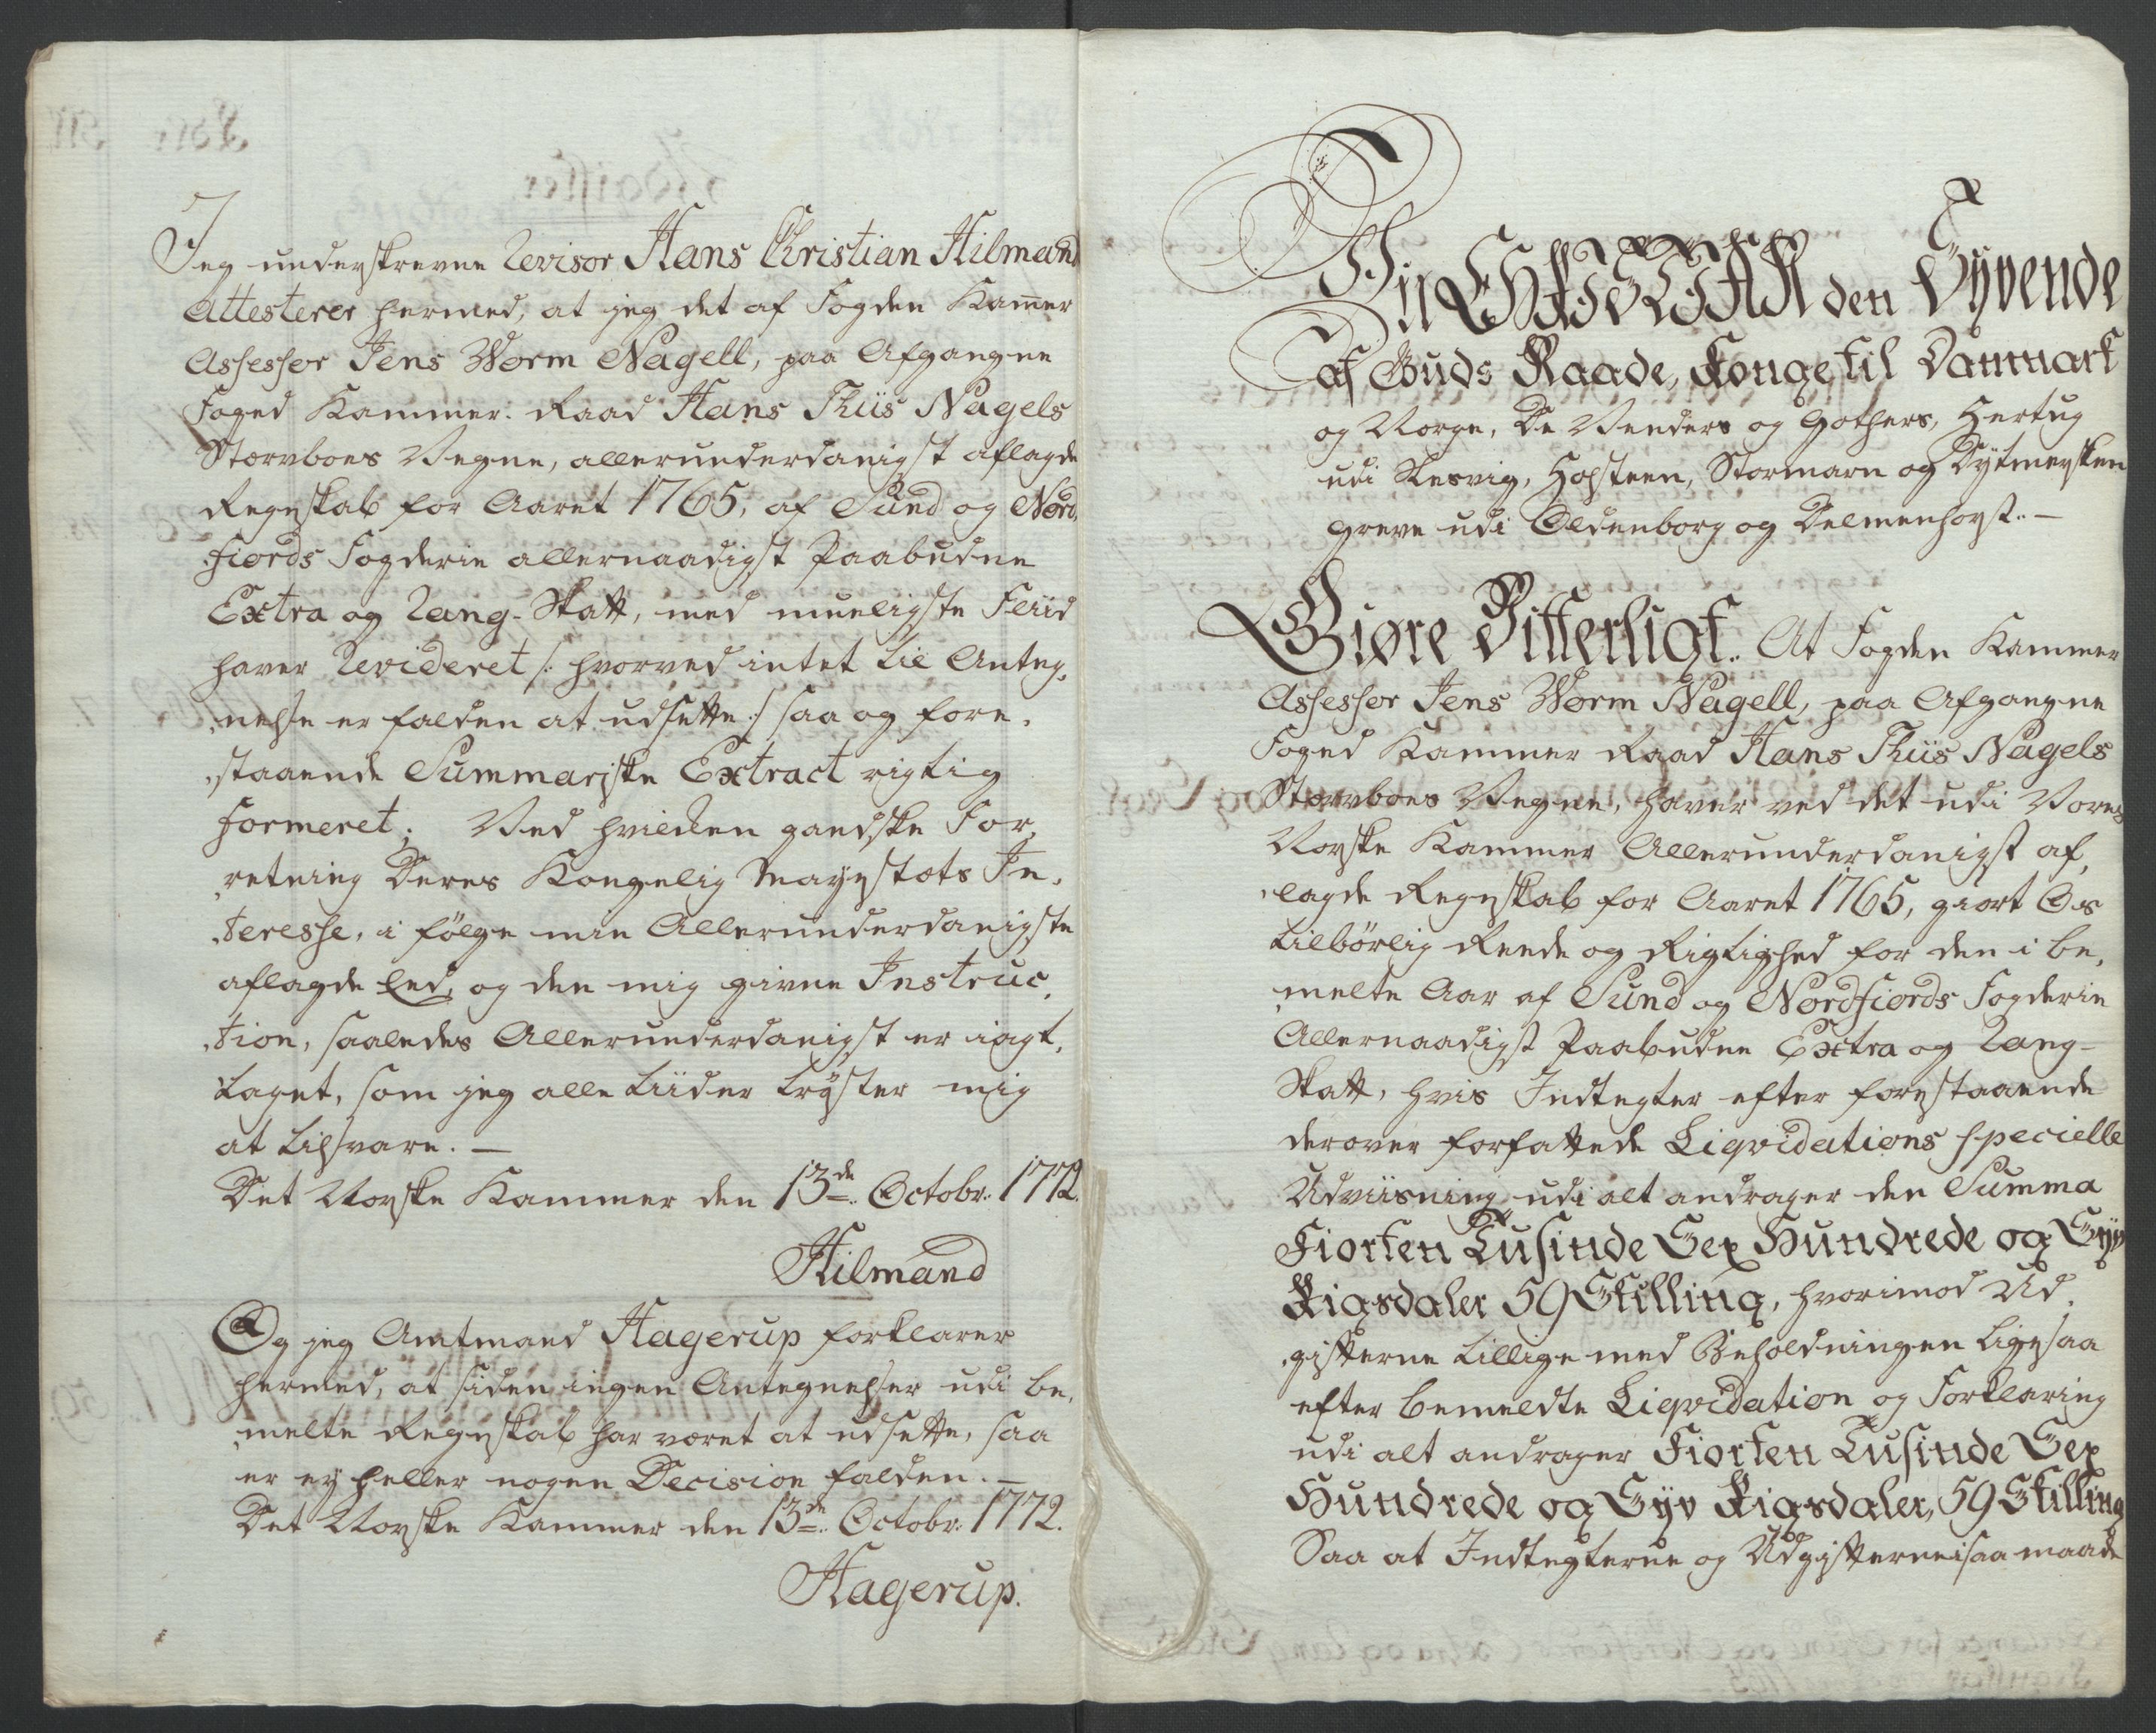 Jeg underskrevne Revisor Hans Christian Hilmand
Attesterer hermed, at jeg det af Fogden Kammer
Assessor Jens Worm Nagell, paa Afgangne
Foged Kammer-Raad Hans Thiis Nagels
Stervboes Vegne, allerunderdanigst aflagde
Regnskab for Aaret 1765, af Sund og Nord,
fiords Fogderie allernaadigst Paabudne
Extra og Rang-Skatt, med mueligste Fliid
haver Revideret /: hvorved intet til Anteg,
nelse er falden at udsette :/ saa og fore,
staaende Summariske Extract rigtig
formeret; Ved hvilcken gandske For,
retning Deres Kongelig Mayestæts In,
teresse, i følge min Allerunderdanigste
aflagde Eed, og den mig givne Instruc,
tion, saaledes Allerunderdanigst er iagt,
taget, som jeg alle tiider trøster mig
at tilsvare. —
Det Norske Kammer den 13de Octobr: 1772.
Hilmand
Og jeg Amtmand Hagerup forklarer
hermed, at siden ingen Antegnelser udi be,
melte Regnskab har været at udsette, saa
er ey heller nogen Decision falden. —
Det Norske Kammer den 13de Octobr: 1772.
Hagerup.
Vii CHRISTIAN den Syvende
af Guds Naade, Konge til Danmark
og Norge, De Venders og Gothers, Hertug
udi Slesvig, Holsteen, Stormarn og Dytmersken
Greve udi Oldenborg og Delmenhorst. —
Giøre Vitterligt: At Fogden Kammer
Assessor Jens Worm Nagell, paa Afgangne
Foged Kammer Raad Hans Thiis Nagels
Stervboes Vegne, haver ved det udi Vores
Norske Kammer Allerunderdanigst af,
lagde Regnskab for Aaret 1765, giort Os
tilbørlig Reede og Rigtighed for den i be,
melte Aar af Sund og Nordfiords Fogderie
Allernaadigst Paabudne Extra og Rang-
Skatt, hvis Indtegter efter forestaaende
derover forfattede Liqvidations specielle
Udviisning udi alt andrager den Summa
Fiorten Tusinde Sex Hundrede og Syv
Rigsdaler 59 Skilling, hvorimod Ud,
gifterne tillige med Beholdningen ligesaa
efter bemeldte Liqvidation og Forklaring
udi alt andrager Fiorten Tusinde Sex
Hundrede og Syv Rigsdaler, 59 Skilling
Saa at Indtegterne og Udgifterne i saa maade